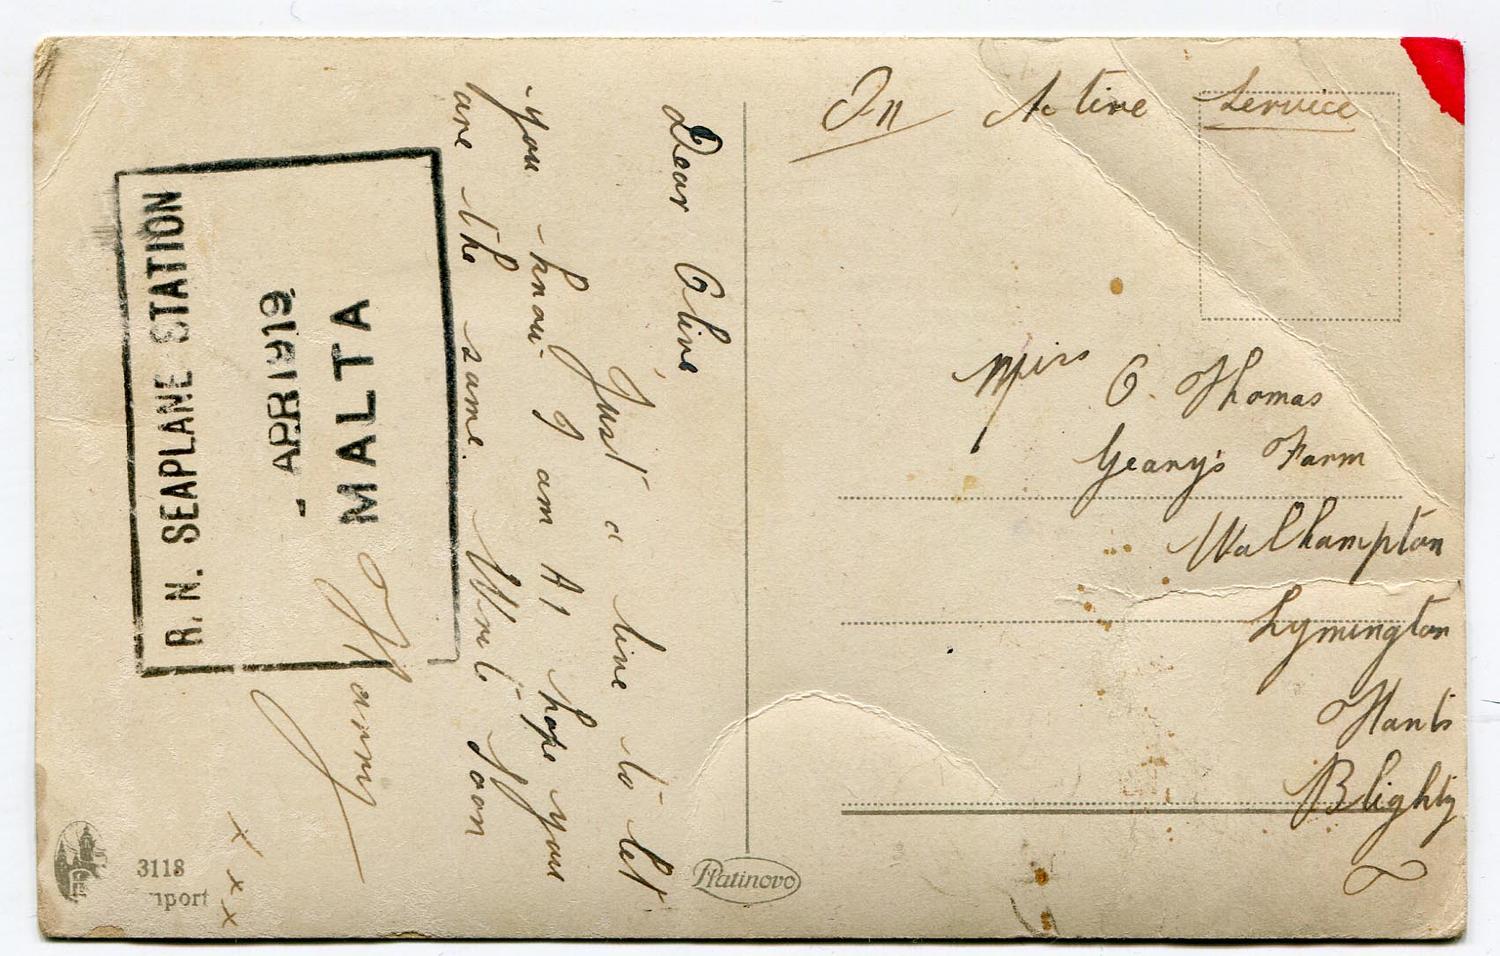 On Active Service
Miss O. Thomas
Geary's Farm
Walhampton
Lymington
Hants
Blighty
Dear Olive,
Just a line to let
you know I am A1 hope you
are the same. Write Soon
Harry
x x x
R. N. SEAPLANE STATION
- APR 1919
MALTA
3118
Platinovo